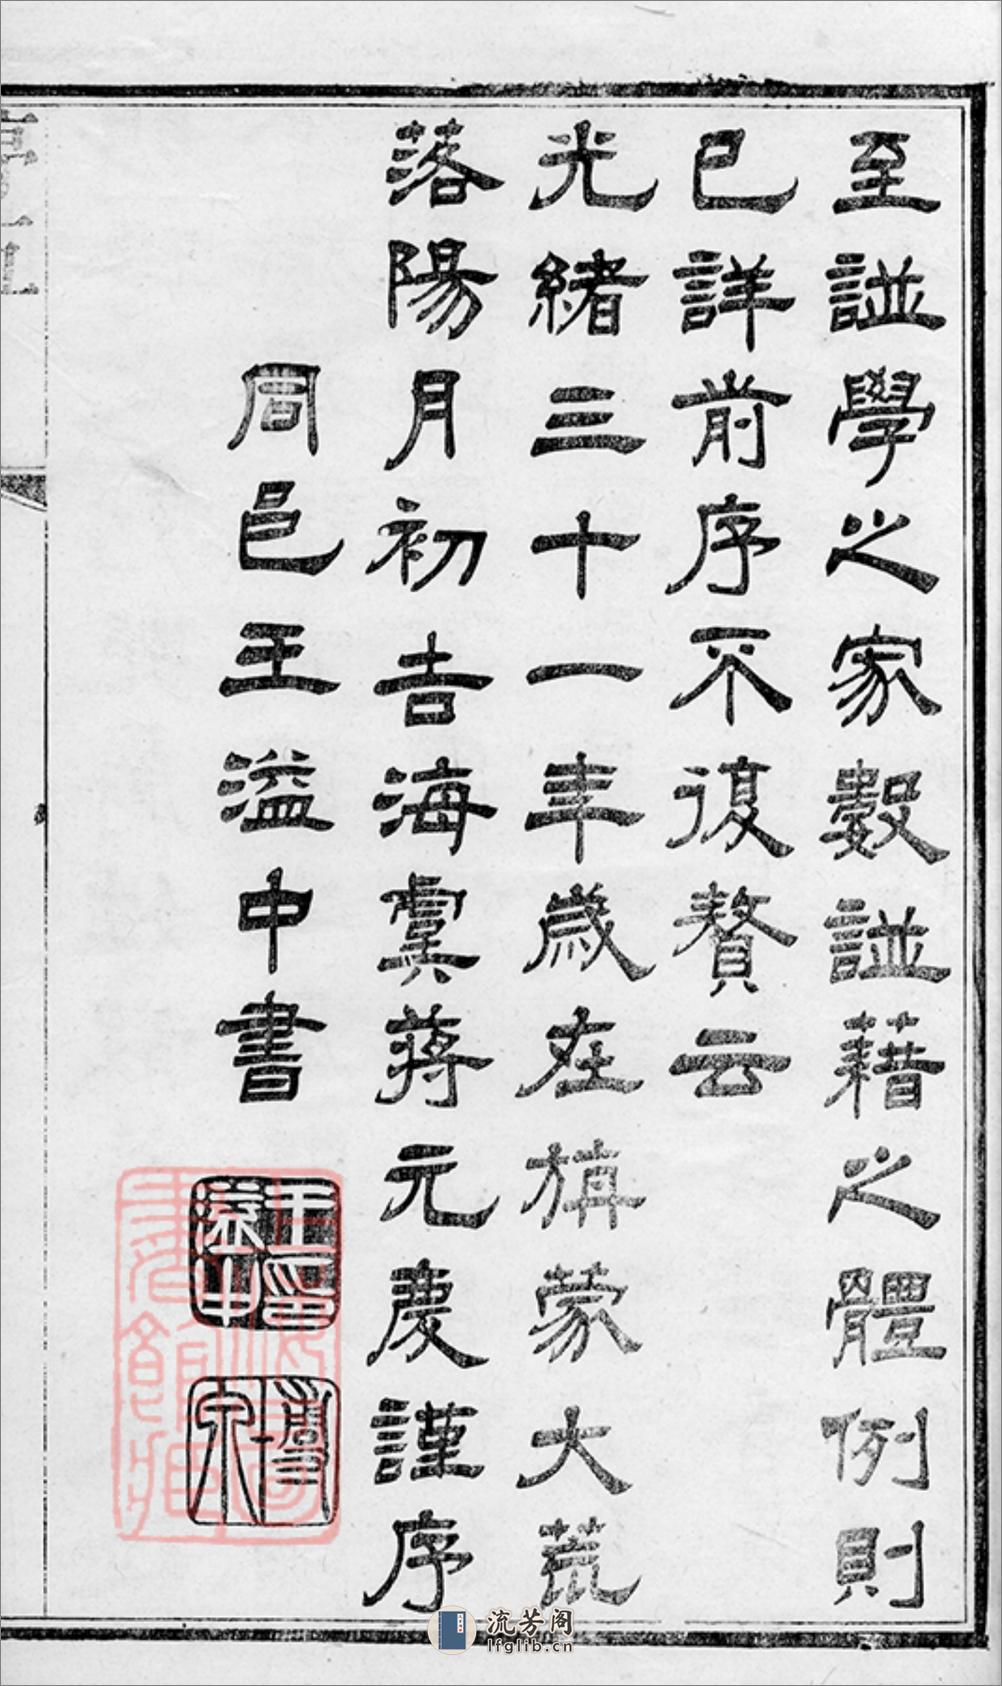 至諩學之家數諩藉之體例則
已詳前序不復贅云
光緒三十一年歲在旃蒙大荒
落陽月初吉海虞蔣元慶謹序
周邑王溢中書
王溢中印
流芳阁
lfglib.cn